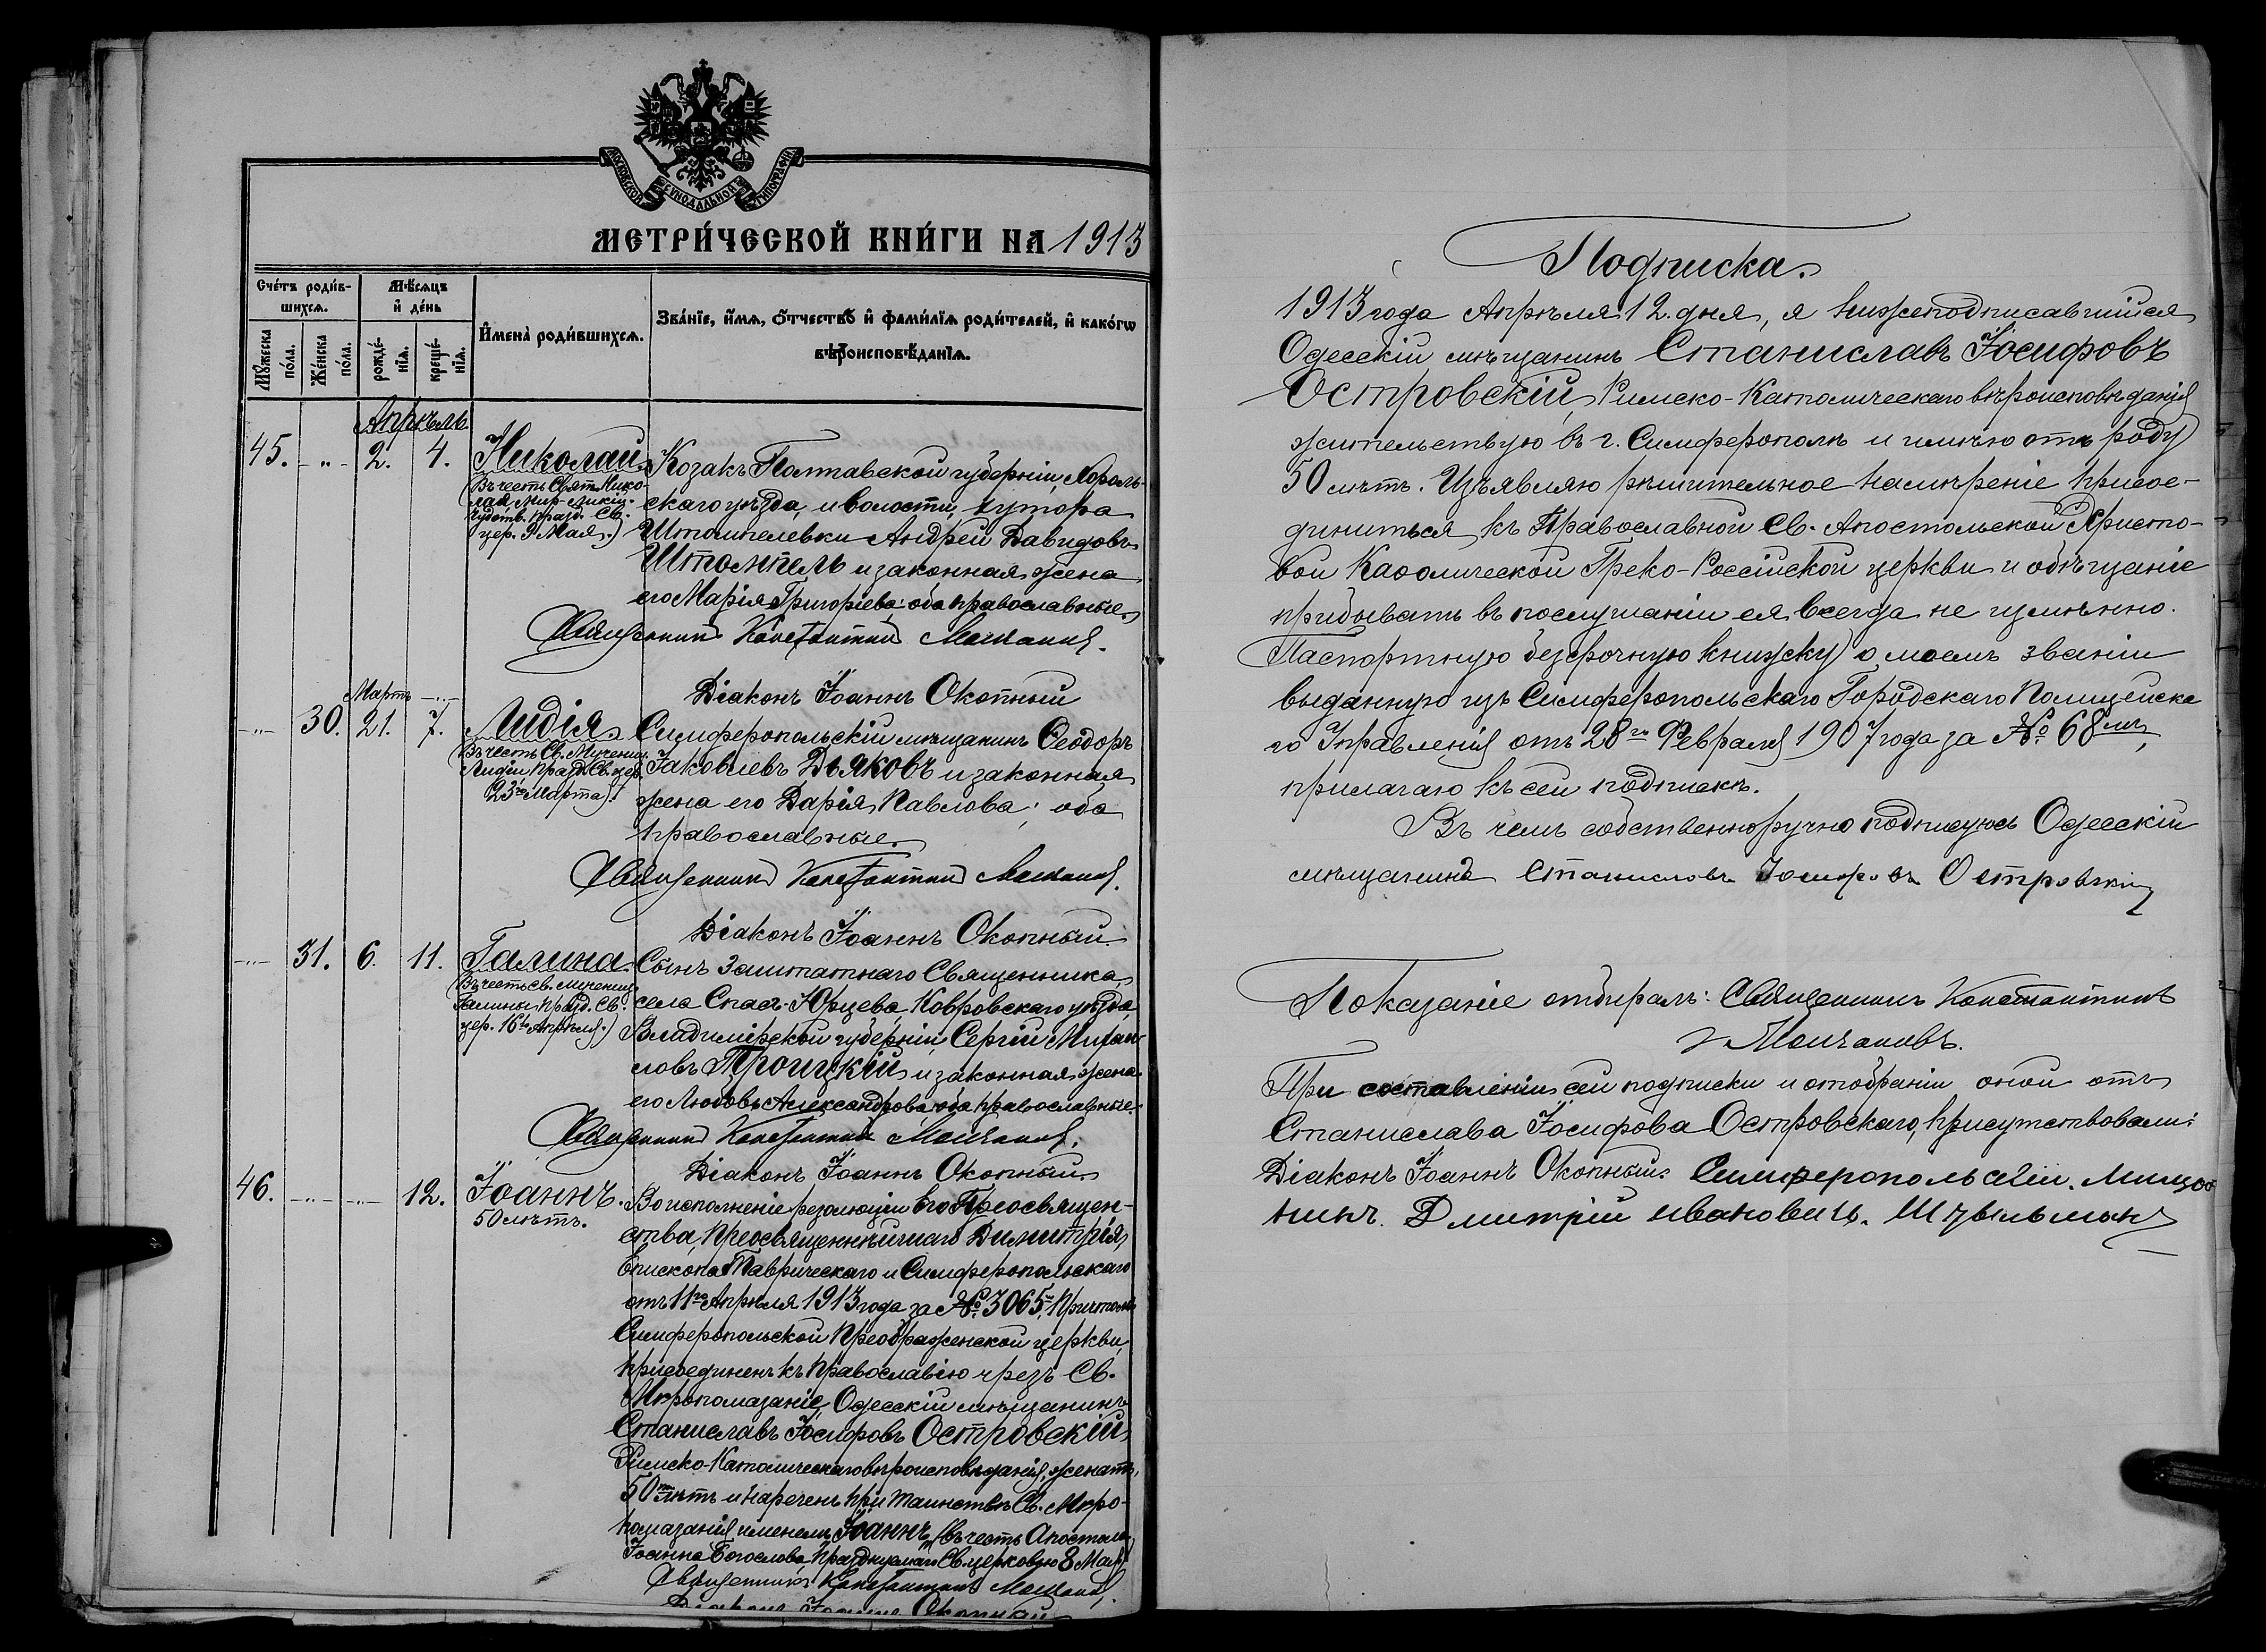 МОСКОВСКОЙ СУНОДАЛЬНОЙ ТИПОГРАФІИ
МЕТРИ́ЧЕСКОЙ КНИ́ГИ НА 1913
Сче́тъ роди́в-
шихсѧ.
Мѣ́сѧцъ
и҆ де́нь
И҆мена̀ роди́вшихсѧ.
Зва́нїе, и҆́мѧ, ѻ҆́тчество и҆ фами́лїѧ роди́телей, и҆ како́гѡ
вѣроисповѣ́данїѧ.
Мꙋ́жеска
по́ла.
Же́нска
по́ла.
рожде́-
нїѧ.
креще́-
нїѧ.
Апрѣль
45. -"- 2. 4. Николай
(Въ честь Свят. Нико-
лая, Мир-Ликій.
Чудотв. празд. Св.
цер. 9 Мая.)
Козакъ Полтавской губерніи, Хороль-
скаго уѣзда, и волости, хутора
Штомпелевки Андрей Давидовъ
Штомпель и законная жена
его Марія Григоріева; оба православные.
Священникъ Константинъ Молчановъ.
Діаконъ Іоаннъ Окопный
Мартъ -"-
-"- 30. 21. 7. Лидія
(Въ честь Св. Мучениц.
Лидіи празд. Св. цер.
23го Марта).
Симферопольскій мѣщанинъ Ѳеодоръ
Іаковлевъ Дьяковъ и законная
жена его Дарія Павлова; оба
православные.
Священникъ Константинъ Молчановъ.
Діаконъ Іоаннъ Окопный
-"- 31. 6. 11. Галина.
(Въ честь Св. Мучениц.
Галины празд. Св.
цер. 16го Апрѣля.)
Сынъ Заштатнаго Священника,
села Спасъ-Юрцева Ковровскаго уѣзда,
Владимірской губерніи, Сергій Михаи-
ловъ Троицкій и законная жена
его Любовь Александрова оба православные.
Священникъ Константинъ Молчановъ.
Діаконъ Іоаннъ Окопный
46. -"- -"- 12. Іоаннъ.
50 лѣтъ.
Во исполненіе резолюціи Его Преосвящен-
ства, Преосвященнѣйшаго Димитрія,
Епископа Таврическаго и Симферопольскаго
отъ 11го Апрѣля 1913 года за № 3065, причтомъ
Симферопольской Преображенской церкви,
присоединенъ къ Православію чрезъ Св.
Мѵропомазаніе, Одесскій мѣщанинъ
Станиславъ Іосифовъ Островскій
Римско-Католическаго вѣроисповѣданія, женатъ,
50 лѣтъ и нареченъ при таинствѣ Св. Мѵро-
помазанія именемъ Іоаннъ (въ честь Апостола
Іоанна Богослова, празднуемаго Св. церковью 8 Мая)
Священникъ Константинъ Молчановъ.
Діаконъ Іоаннъ Окопный
Подписка.
1913 года Апрѣля 12. дня, я нижеподписавшійся
Одесскій мѣщанинъ Станиславъ Іосифовъ
Островскій, Римско-Католическаго вѣроисповѣданія
жительствую въ г. Симферополѣ и имѣю отъ роду
50 лѣтъ. Изъявляю рѣшительное намѣреніе присое-
диниться къ Православной Св. Апостольской Христо-
вой Каѳолической Греко-Россійской церкви и обѣщаніе
прибывать въ послушаніи ея всегда не измѣнно.
Паспортную безсрочную книжку о моемъ званіи
выданную изъ Симферопольскаго Городскаго Полицейска
го Управленія отъ 28го Февраля 1907 года за № 68мъ,
прилагаю къ сей подпискѣ.
Въ чемъ собственноручно подписуюсь Одесскій
мѣщанинъ Станиславъ Іосифовъ Островскій
Показаніе отбиралъ: Священникъ Константинъ
Молчановъ.
При составленіи сей подписки и отобраніи оной отъ
Станислава Іосифова Островскаго, присутствовали:
Діаконъ Іоаннъ Окопный. Симферопольскій. Мищо
нинъ. Дмитрій Ивановичъ.